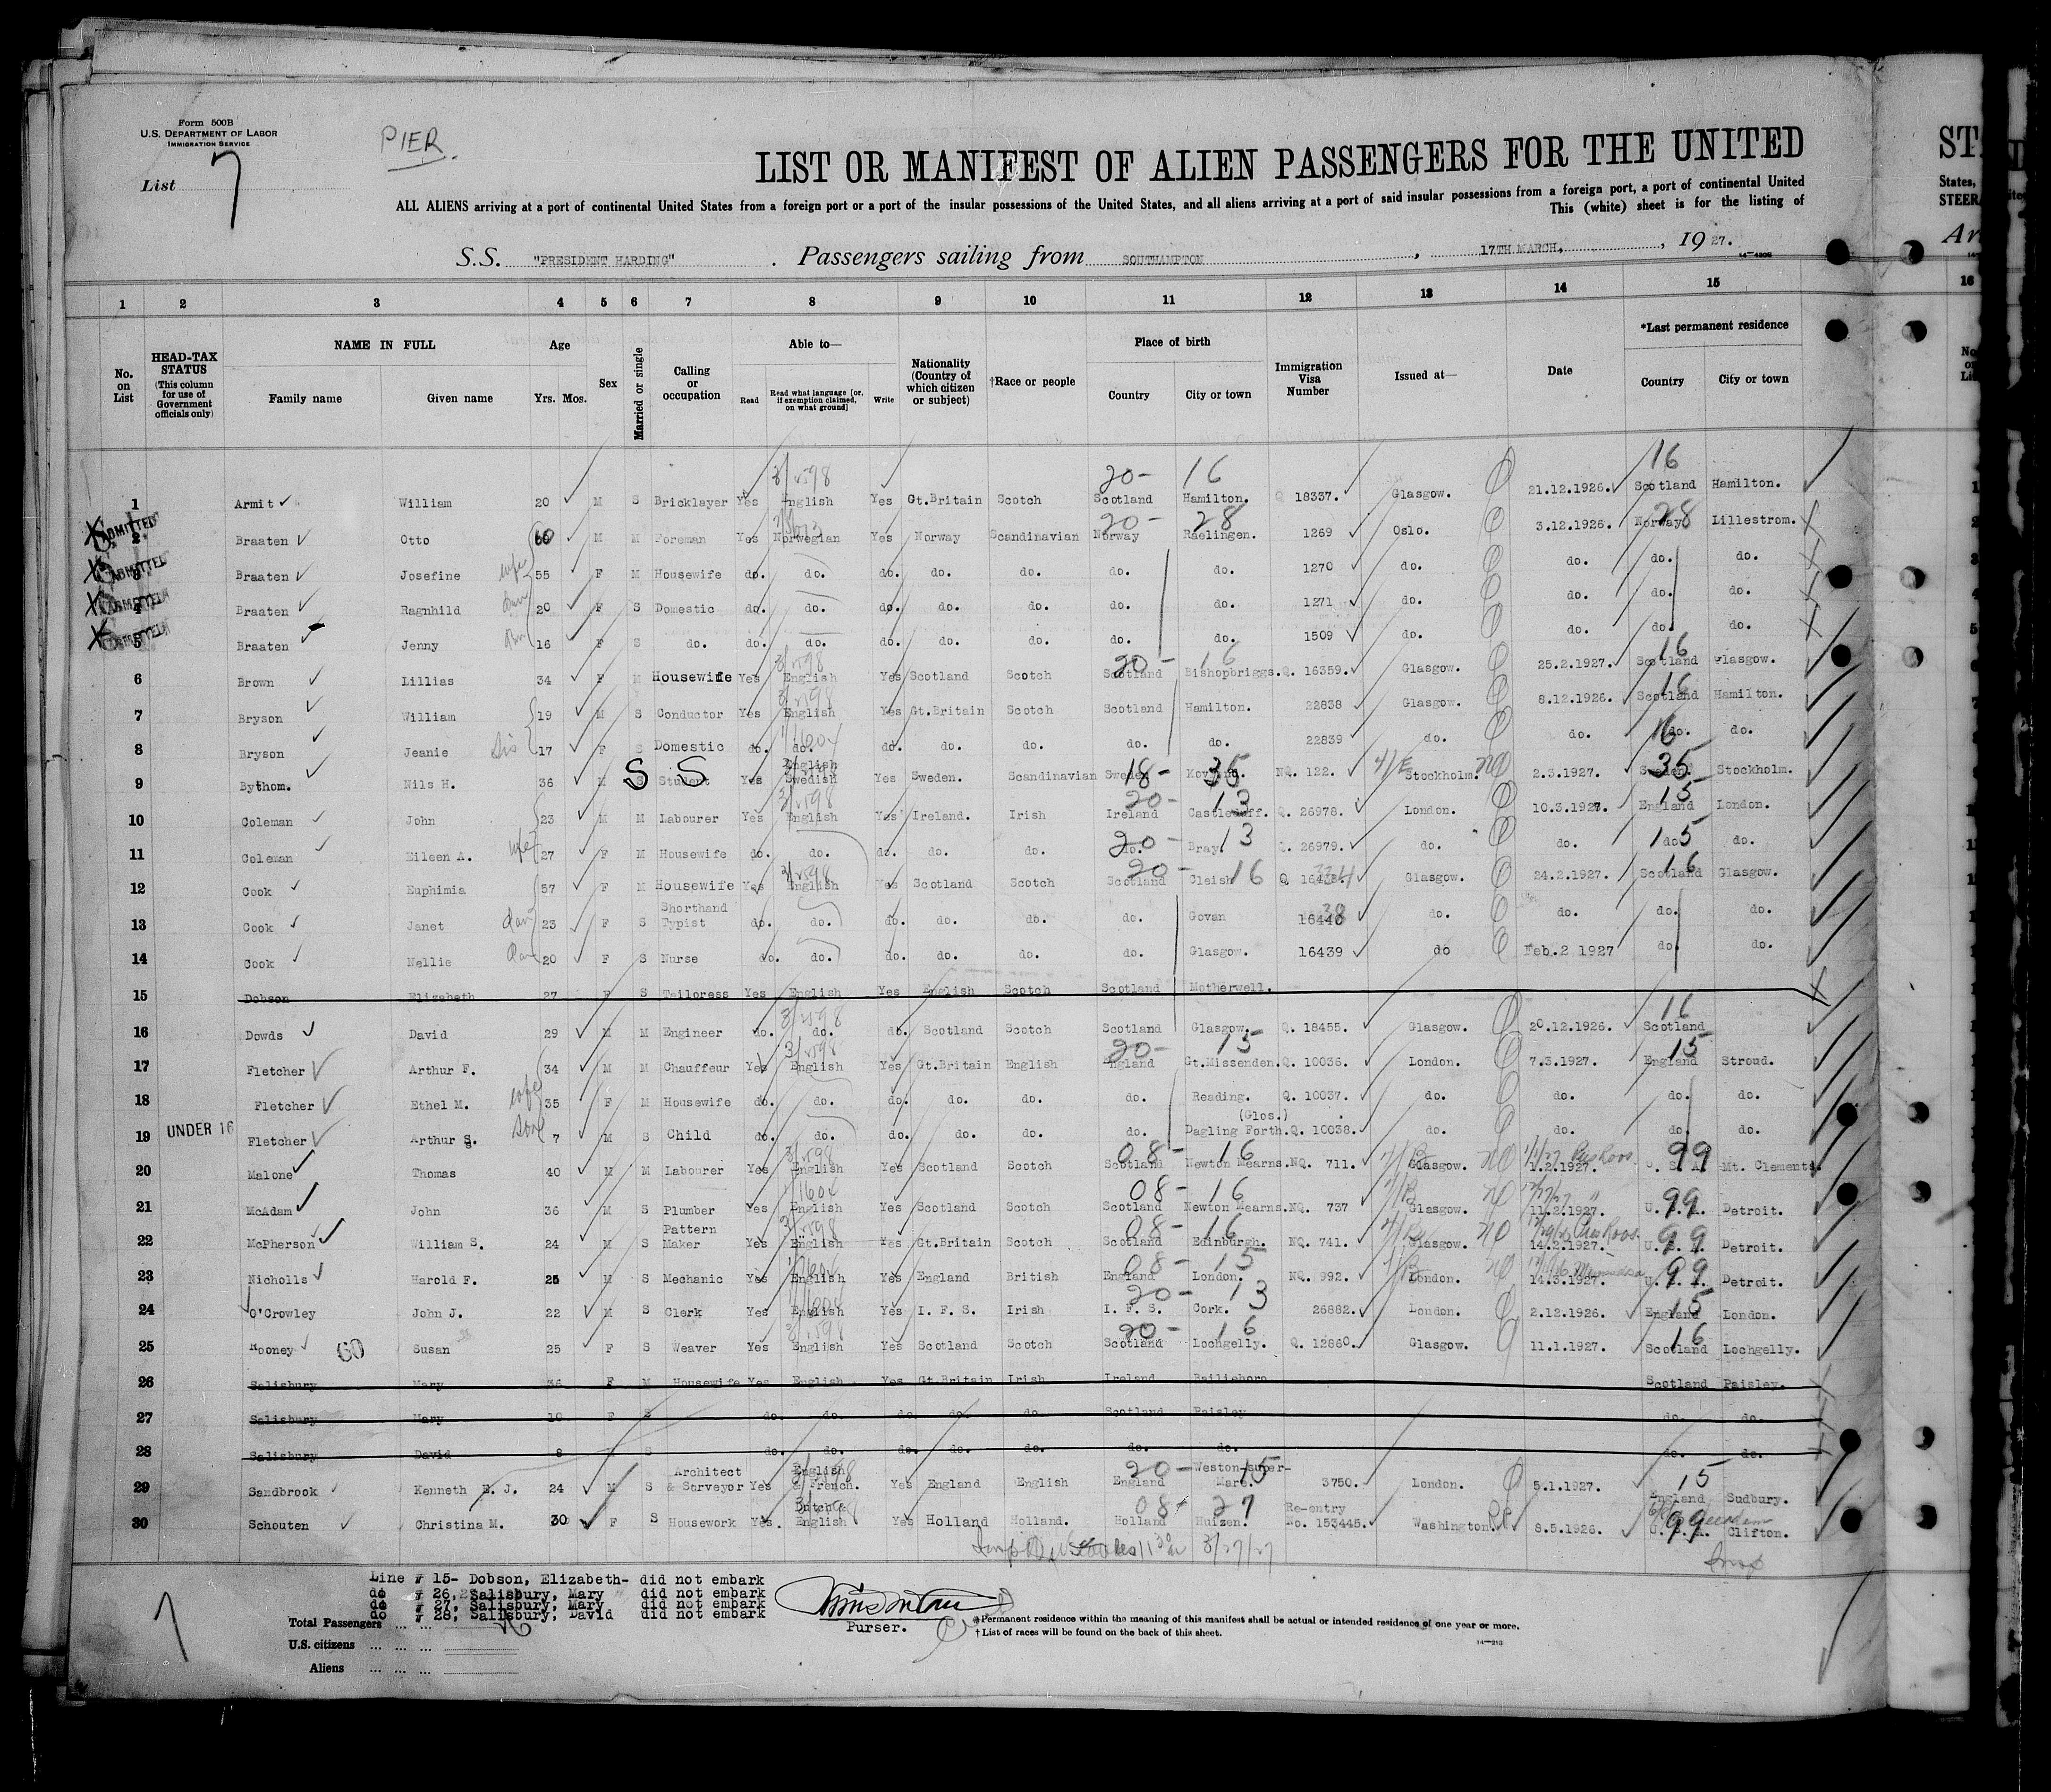 Form 500B
U.S. DEPARTMENT OF LABOR
IMMIGRATION SERVICE
PIER.
List 7
LIST OR MANIFEST OF ALIEN PASSENGERS FOR THE UNITED
ALL ALIENS arriving at a port of continental United States from a foreign port or a port of the insular possessions of the United States, and all aliens arriving at a port of said insular possessions from a foreign port, a port of continental United
This (white) sheet is for the listing of
S.S. "PRESIDENT HARDING". Passengers sailing from SOUTHAMPTON, 17TH MARCH, 1927.
1 2 3 4 5 6 7 8 9 10 11 12 13 14 15
No. on List
HEAD-TAX STATUS (This column for use of Government officials only)
NAME IN FULL Family name Given name
Age Yrs. Mos.
Sex
Married or single
Calling or occupation
Able to— Read Read what language [or, if exemption claimed, on what ground] Write
Nationality (Country of which citizen or subject)
†Race or people
Place of birth Country City or town
Immigration Visa Number
Issued at—
Date
*Last permanent residence Country City or town
1 Armit William 20 M S Bricklayer Yes English Yes Gt.Britain Scotch Scotland Hamilton. Q 18337. Glasgow. 21.12.1926. Scotland Hamilton.
ADMITTED 2 Braaten Otto 60 M M Foreman Yes Norwegian Yes Norway Scandinavian Norway Raelingen. 1269 Oslo. 3.12.1926. Norway Lillestrom.
ADMITTED 3 Braaten Josefine wife 55 F M Housewife do. do. do. do. do. do. do. 1270 do. do. do. do.
ADMITTED 4 Braaten Ragnhild 20 F S Domestic do. do. do. do. do. do. do. 1271 do. do. do. do.
ADMITTED 5 Braaten Jenny 16 F S do. do. do. do. do. do. do. do. 1509 do. do. do. do.
6 Brown Lillias 34 F M Housewife Yes English Yes Scotland Scotch Scotland Bishopbriggs. Q. 16359. Glasgow. 25.2.1927. Scotland Glasgow.
7 Bryson William 19 M S Conductor Yes English Yes Gt.Britain Scotch Scotland Hamilton. 22838 Glasgow. 8.12.1926. Scotland Hamilton.
8 Bryson Jeanie Sis 17 F S Domestic do. do. do. do. do. do. do. 22839 do. do. do. do.
9 Bythom. Nils H. 36 M S Student Yes English Swedish Yes Sweden. Scandinavian Sweden NQ. 122. Stockholm. 2.3.1927. Sweden. Stockholm.
10 Coleman John 23 M M Labourer Yes English Yes Ireland. Irish Ireland Q. 26978. London. 10.3.1927. England London.
11 Coleman Eileen A. wife 27 F M Housewife do. do. do. do. do. do. Bray. Q. 26979. do. do. do. do.
12 Cook Euphimia 57 F M Housewife Yes English Yes Scotland Scotch Scotland Cleish Glasgow. 24.2.1927. Scotland Glasgow.
13 Cook Janet 23 F S Shorthand Typist do. do. do. do. do. do. Govan do. do. do. do.
14 Cook Nellie 20 F S Nurse do. do. do. do. do. do. Glasgow. 16439 do Feb.2 1927 do. do.
15 Dobson Elizabeth 27 F S Tailoress Yes English Yes English Scotch Scotland Motherwell.
16 Dowds David 29 M M Engineer do. do. do. Scotland Scotch Scotland Glasgow. Q. 18455. Glasgow. 20.12.1926. Scotland
17 Fletcher Arthur F. 34 M M Chauffeur Yes English Yes Gt.Britain English England Gt.Missenden. Q. 10036. London. 7.3.1927. England Stroud.
18 Fletcher Ethel M. wife 35 F M Housewife do. do. do. do. do. do. Reading. Q. 10037. do. do. do. do.
UNDER 16 19 Fletcher Arthur S. Son 7 M S Child do. do. do. do. do. do. (Glos.) Dagling Forth. Q. 10038. do. do. do. do.
20 Malone Thomas 40 M M Labourer Yes English Yes Scotland Scotch Scotland Newton Mearns. NQ. 711. Glasgow. 1.2.1927. U.S.A. Mt. Clements.
21 McAdam John 36 M S Plumber Yes English Yes Scotland Scotch Scotland Newton Mearns. NQ. 737 Glasgow. 11.2.1927. U.S.A. Detroit.
22 McPherson William S. 24 M S Pattern Maker Yes English Yes Gt.Britain Scotch Scotland Edinburgh. NQ. 741. Glasgow. 14.2.1927. U.S.A. Detroit.
23 Nicholls Harold F. 25 M S Mechanic Yes English Yes England British England London. NQ. 992. London. 14.3.1927. U.S.A. Detroit.
24 O'Crowley John J. 22 M S Clerk Yes English Yes I. F. S. Irish I. F. S. Cork. 26882. London. 2.12.1926. England London.
25 Rooney 60 Susan 25 F S Weaver Yes English Yes Scotland Scotch Scotland Lochgelly. Q. 12860. Glasgow. 11.1.1927. Scotland Lochgelly.
26 Salisbury Mary 36 F M Housewife Yes English Yes Gt.Britain Irish Ireland Bailieboro. Scotland Paisley.
27 Salisbury Mary 10 F S do. do. do. do. do. Scotland Paisley do. do.
28 Salisbury David 8 S do. do. do. do. do. do. do. do. do.
29 Sandbrook Kenneth E. J. 24 M S Architect & Surveyor Yes English & French. Yes England English England Weston-super-Mare. 3750. London. 5.1.1927. England Sudbury.
30 Schouten Christina M. 30 F S Housework Yes. Dutch & English Yes Holland Holland. Holland Huizen. Re-entry No. 153445. Washington. 8.5.1926. U.S.A. Clifton.
Line # 15- Dobson, Elizabeth- did not embark
do # 26, Salisbury, Mary did not embark
do # 27, Salisbury, Mary did not embark
do # 28, Salisbury, David did not embark
Total Passengers ... ...
U.S. citizens ... ... ...
Aliens ... ... ...
Purser.
Permanent residence within the meaning of this manifest shall be actual or intended residence of one year or more.
† List of races will be found on the back of this sheet.
14—213